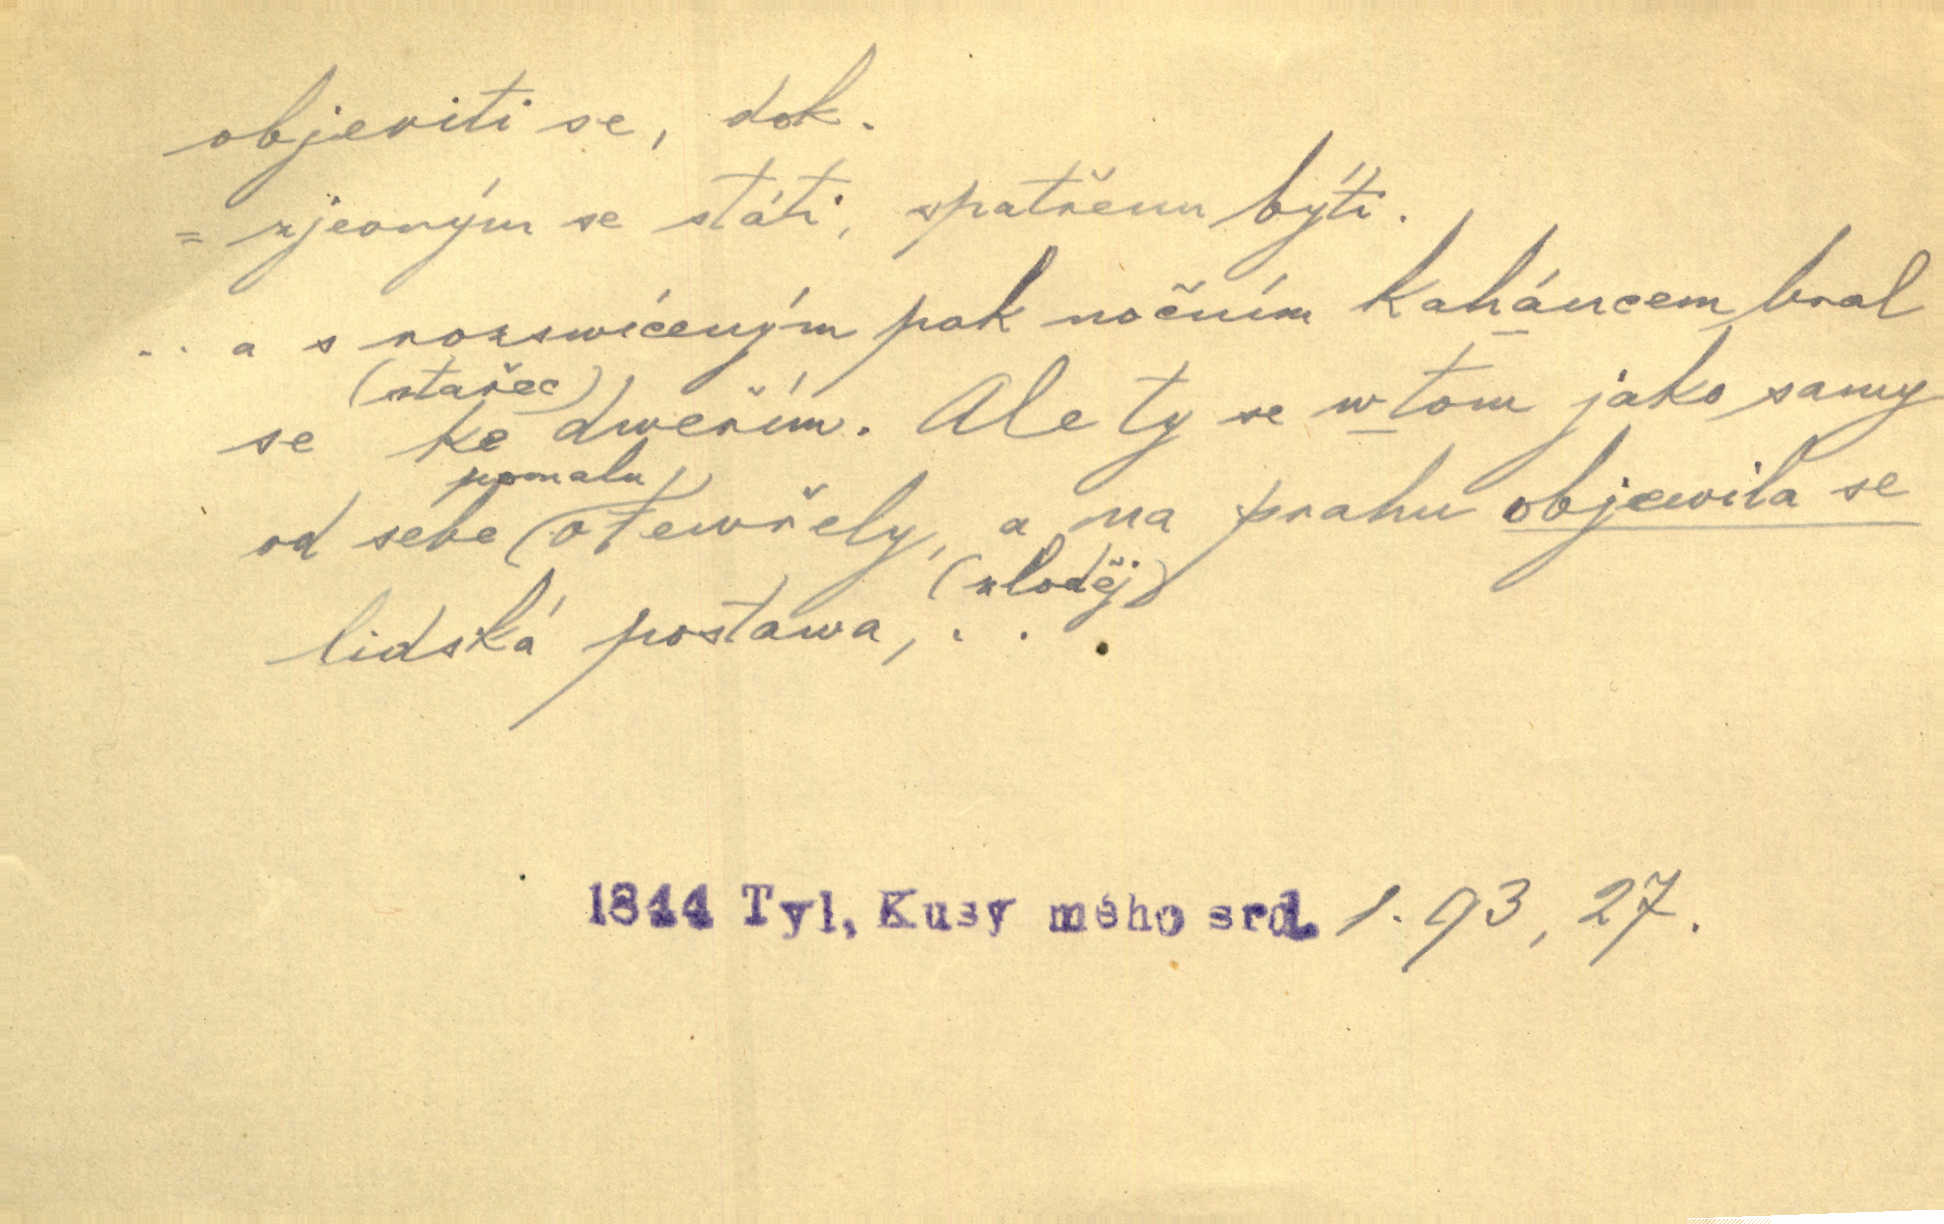 objeviti se, dok.
= zjevným se státi, spatřenu býti.
.. a s rozswíceným pak nočním kaháncem bral
(stařec)
se ke dweřím. Ale ty se w tom jako samy
pomalu
od sebe otewřely, a na prahu objewila se
(zloděj)
lidská postawa, . .
1844 Tyl, Kusy mého srd. 1. 93, 27.